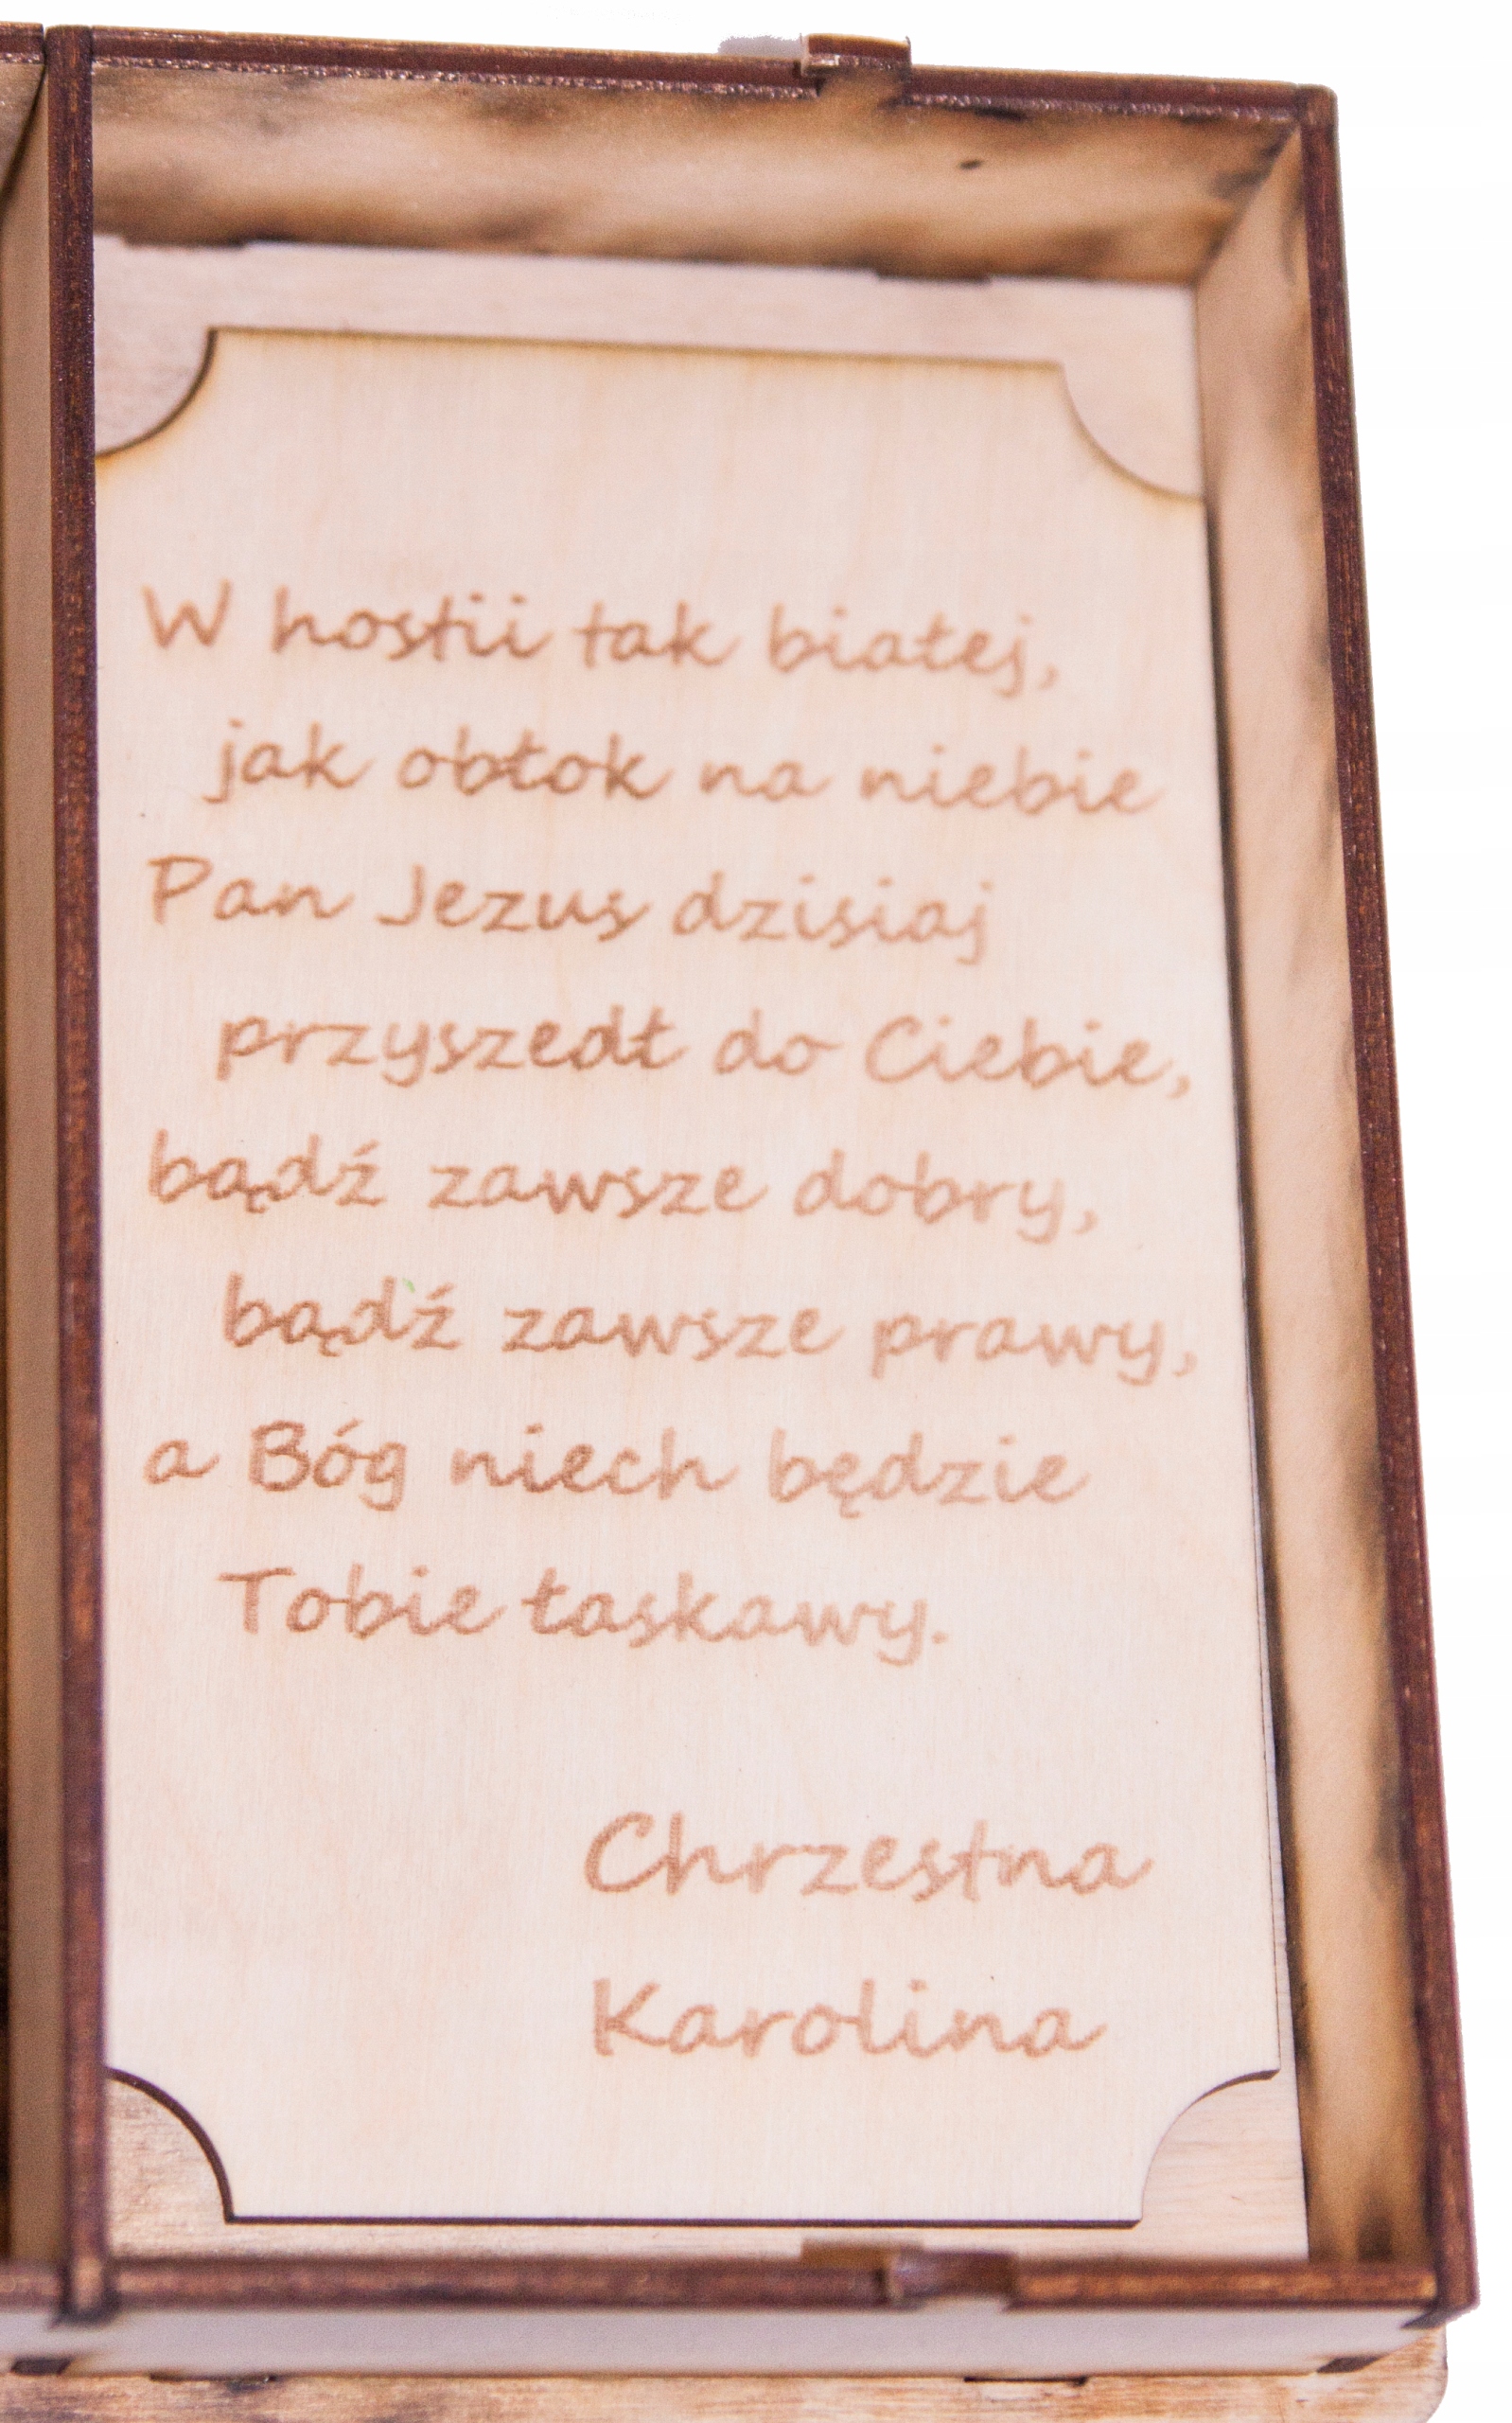 W hostii tak białej,
jak obłok na niebie
Pan Jezus dzisiaj
przyszedł do Ciebie,
bądź zawsze dobry,
bądź zawsze prawy,
a Bóg niech będzie
Tobie łaskawy.
Chrzestna
Karolina